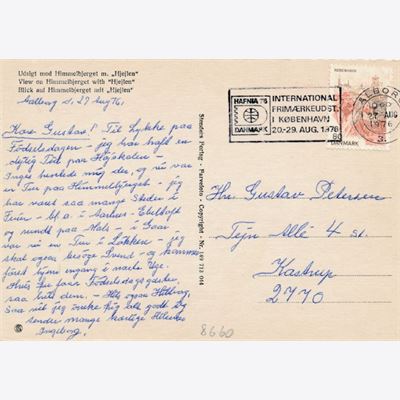 Udsigt mod Himmelbjerget m. „Hjejlen"
View on Himmelbjerget with "Hjejlen"
Blick auf Himmelbjerget mit „Hjejlen"
d. 27 Aug 76.
Kære Gustav! Til Lykke paa
Fødselsdagen – jeg har haft en
dejlig Tid paa Højskolen –
Inga hentede mig der, og nu var
vi en Tur paa Himmelbjerget – jeg
har været saa mange Steder i
Ferien – bl.a. i Aarhus Ebeltoft
og rundt paa Mols – i Gaar
var vi en Tur i Løkken – jeg
skal ogsaa besøge Svend – og kommer
først hjem engang i næste Uge.
Hvis du faar Fødselsdagsgæster,
saa hils dem, – Hils ogsaa
Saa vil jeg ønske dig alt godt og
sender mange kærlige Hilsener
Ingeborg.
Stenders Forlag - Farvefoto - Copyright - Nr. 149 713 014
HAFNIA 76
DANMARK
INTERNATIONAL
FRIMÆRKEUDST.
I KØBENHAVN
20.-29. AUG. 1976
KØBENHAVN
80
DANMARK
AALBORG
27. AUG
1976
3.
Hr. Gustav Petersen
Tejn Allé 4 st.
Kastrup
2770
8660